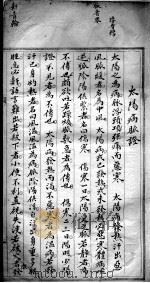 太陽病脈證
太陽之為病脈浮頭項強痛而惡寒 太陽病發熱汗出惡
風脈緩者為中風 太陽病或已發熱或未發熱必惡寒體痛
嘔逆脈陰陽俱緊者名曰傷寒 傷寒一日太陽受之脈若靜者為
不傳頗欲吐若躁煩脈數急者為傳也 傷寒二三日陽明少陽
證不見者為不傳也 太陽病發熱而渴不惡寒者為溫病若發
汗已身灼熱者名曰風溫風溫為病脈陰陽俱浮自汗出身重多
眠息必鼾語言難出若被下者小便不利直視失溲若被火者